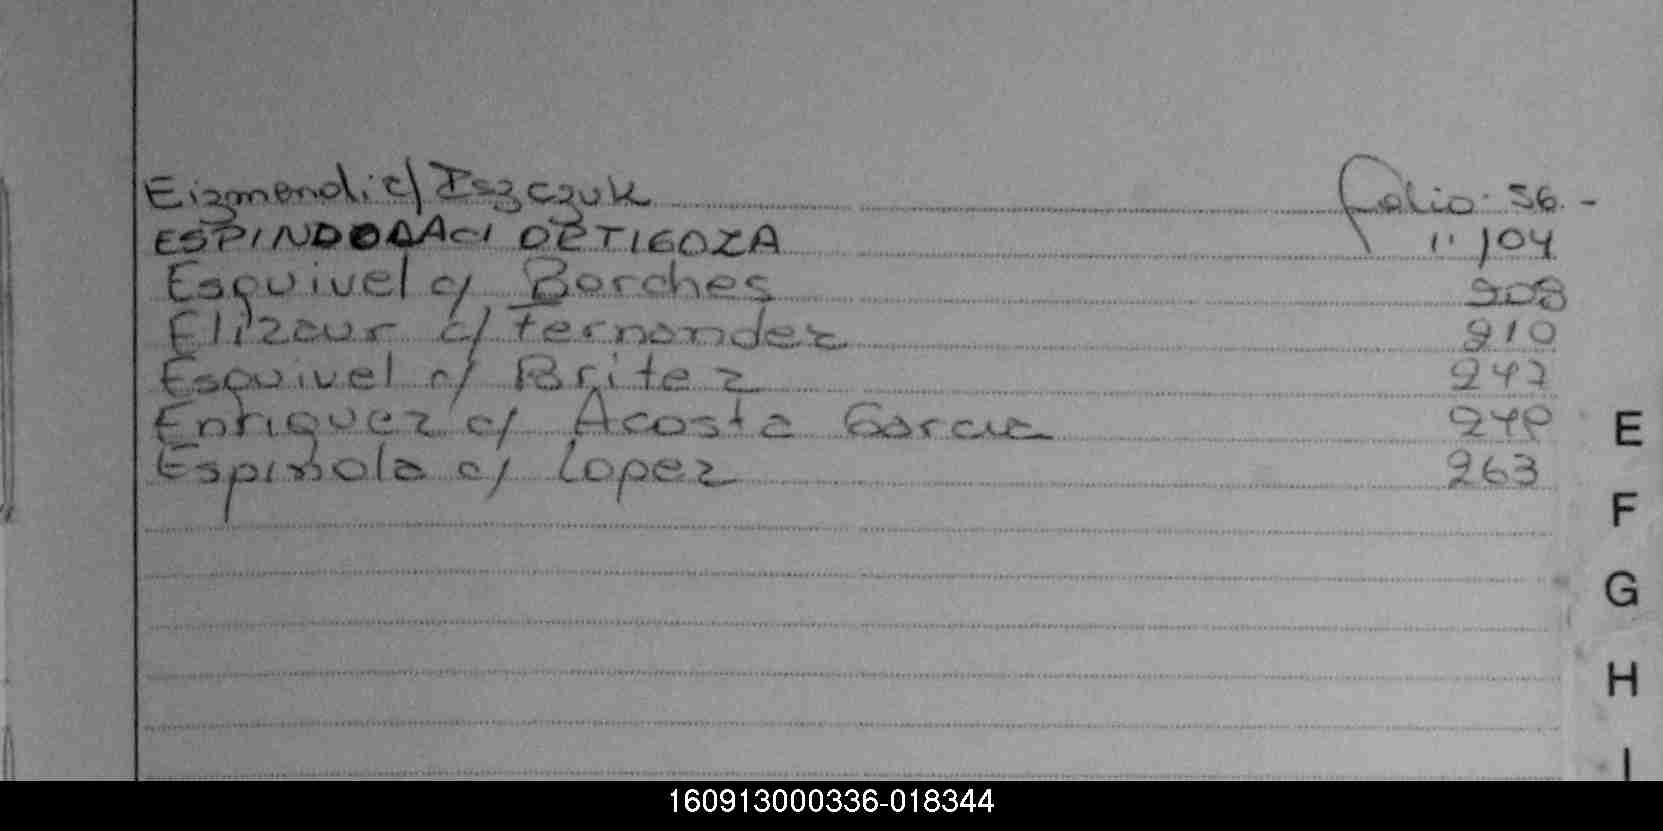 Eizmendi c/ Iszczuk folio: 56.-
ESPINDOLA C/ ORTIGOZA " 104
Esquivel c/ Borches 208
Elizaur c/ Fernandez 210
Esquivel c/ Britez 247
Enriquez c/ Acosta Garcia 249
Espinola c/ Lopez 263
E
F
G
H
I
160913000336-018344